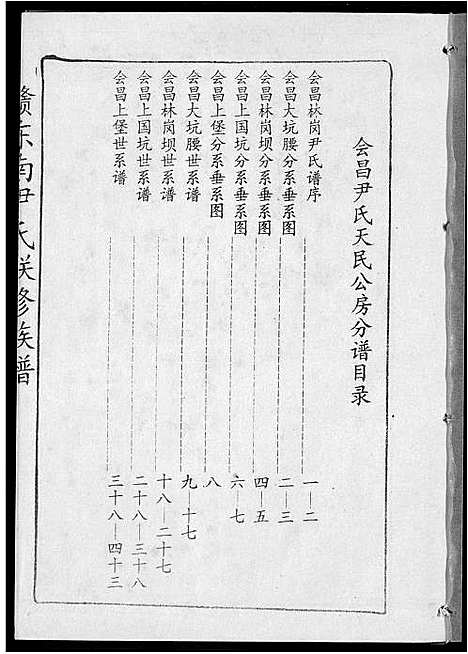 会昌尹氏天民公房分谱目录
会昌林岗尹氏谱序 一—二
会昌大坑腰分系垂系图 二—三
会昌林岗坝分系垂系图 四—五
会昌上国坑分系垂系图 六 七
会昌上堡分系垂系图 八
会昌大坑腰世系谱 九—十七
会昌林岗坝世系谱 十八—二十七
会昌上国坑世系谱 二十八—三十八
会昌上堡世系谱 三十八—四十三
赣东南尹氏联修族谱